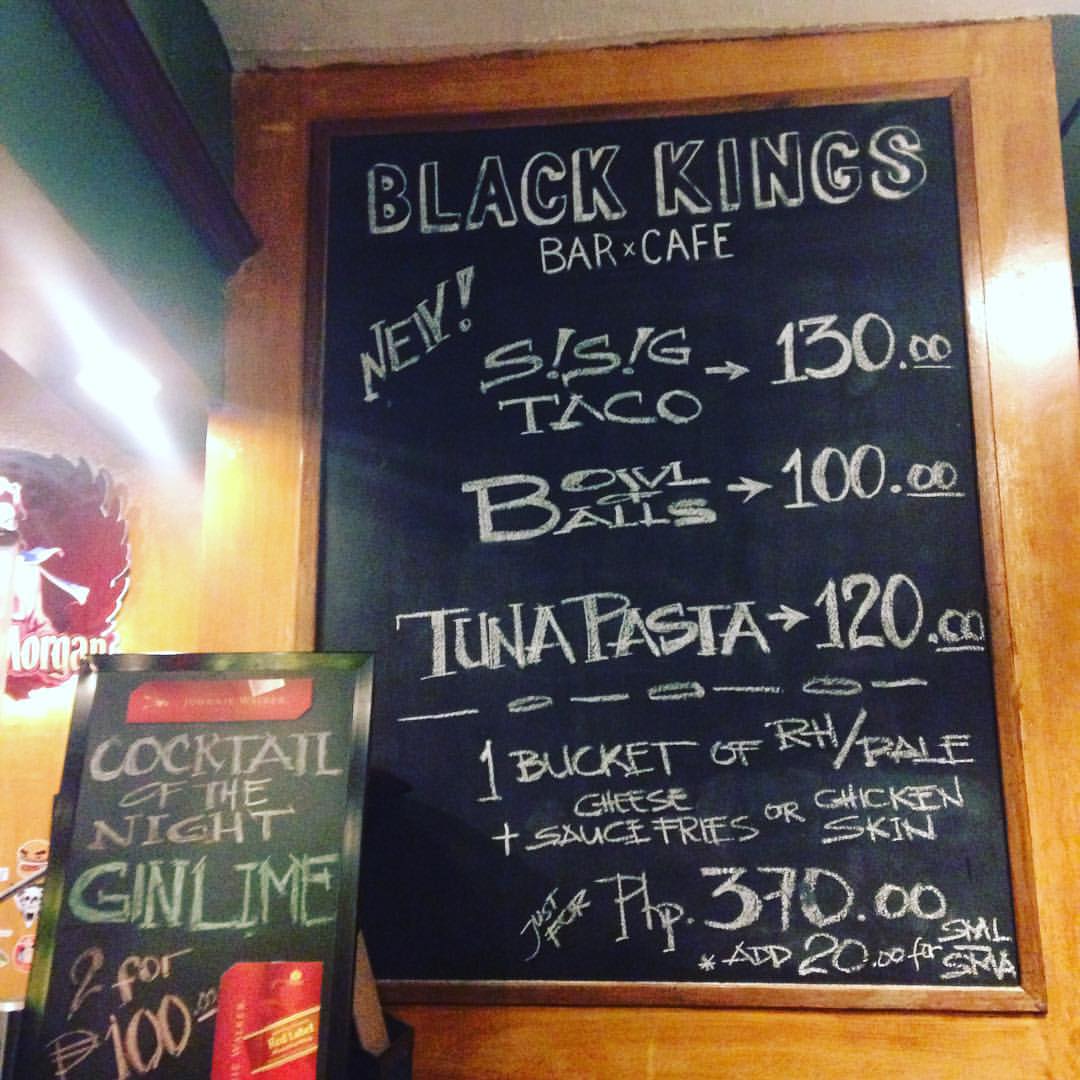 BLACK KINGS
BAR x CAFE
NEW!
S!S!G TACO → 130.00
BOWL OF BALLS → 100.00
TUNA PASTA → 120.00
1 BUCKET OF RH/PALE
+ CHEESE SAUCE FRIES OR CHICKEN SKIN
JUST FOR Php. 370.00
* ADD 20.00 for SML
Morgan
JOHNNIE WALKER
COCKTAIL
OF THE
NIGHT
GIN LIME
2 for
₱100.00
Red Label